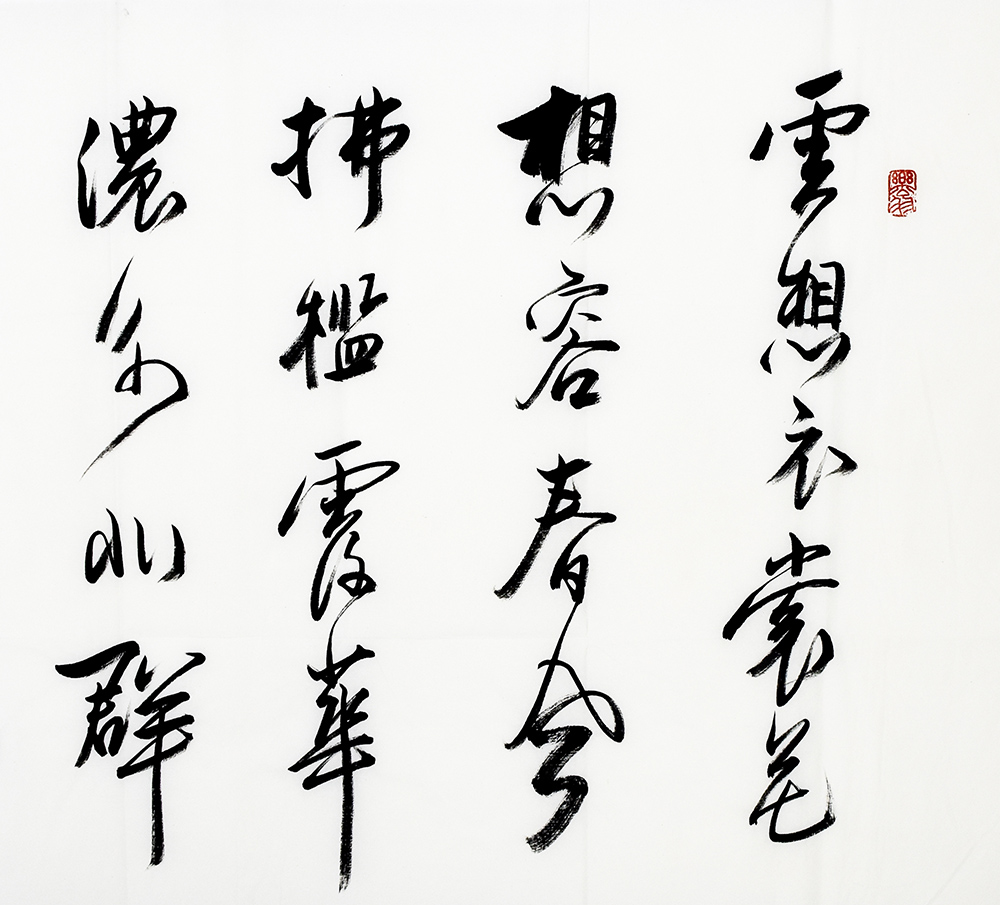 雲想衣裳花
想容春風
拂檻露華
濃若非群